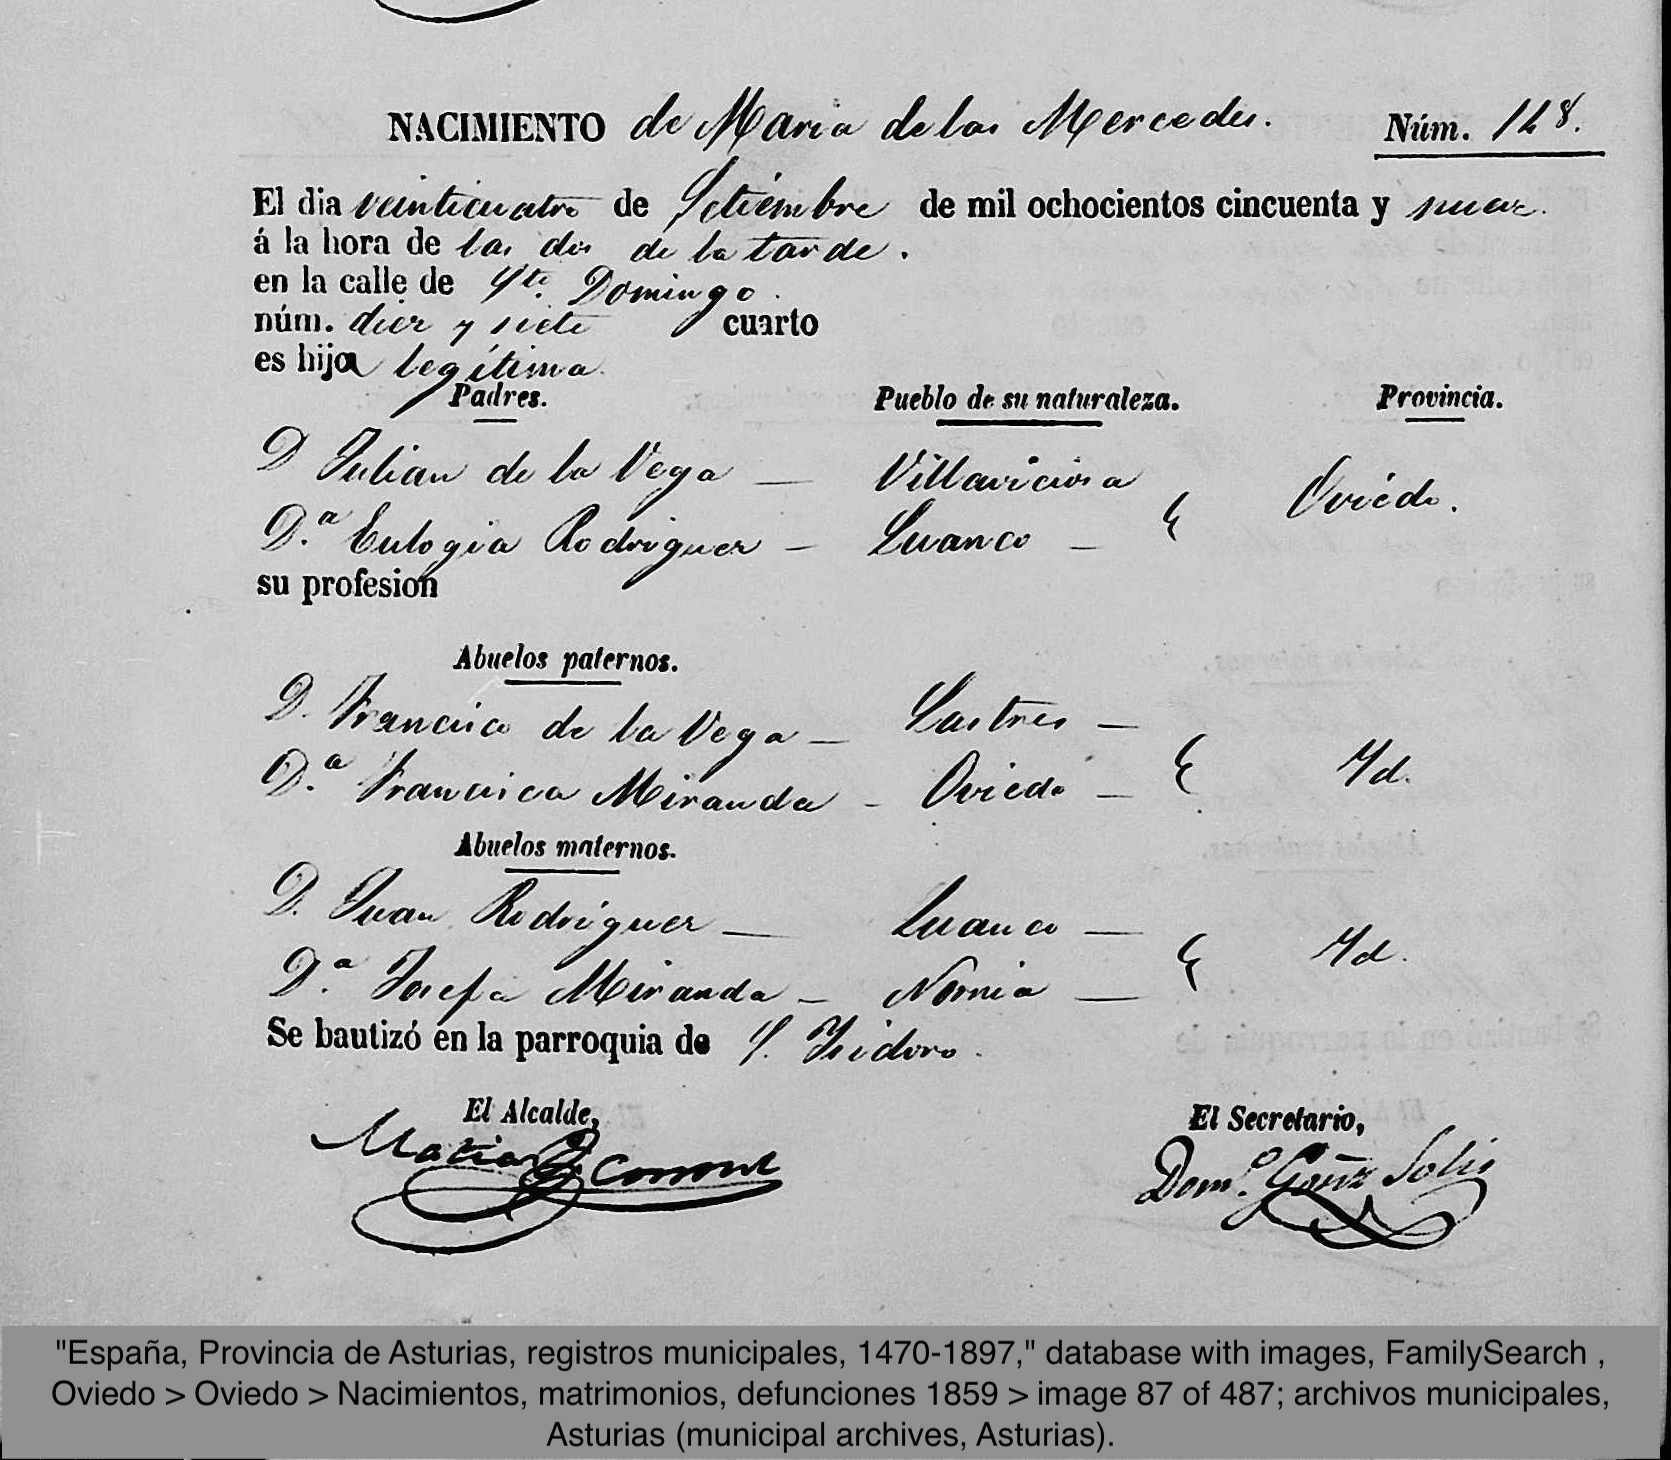 NACIMIENTO de Maria de las Mercedes. Núm. 128.
El dia veinticuatro de Setiembre de mil ochocientos cincuenta y nueve.
á la hora de las dos de la tarde.
en la calle de Sto. Domingo.
núm. diez y siete cuarto
es hija legítima.
Padres. Pueblo de su naturaleza. Provincia.
D Julian de la Vega — Villaviciosa
Oviedo.
D.ª Eulogia Rodriguez — Luanco —
su profesion
Abuelos paternos.
D. Francisco de la Vega — Lastres —
Id.
D.ª Francisca Miranda - Oviedo —
Abuelos maternos.
D. Juan Rodriguez — Luanco —
Id.
D.ª Josefa Miranda — —
Se bautizó en la parroquia de S. Isidoro.
El Alcalde, El Secretario,
Matias Dom.º Solis
"España, Provincia de Asturias, registros municipales, 1470-1897," database with images, FamilySearch ,
Oviedo > Oviedo > Nacimientos, matrimonios, defunciones 1859 > image 87 of 487; archivos municipales,
Asturias (municipal archives, Asturias).